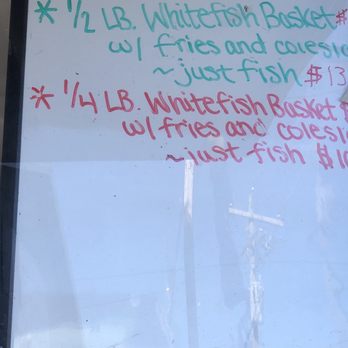 * 1/2 LB. Whitefish Basket $
w/ fries and colesl
~just fish $13
* 1/4 LB. Whitefish Basket $
w/ fries and colesl
~just fish $10